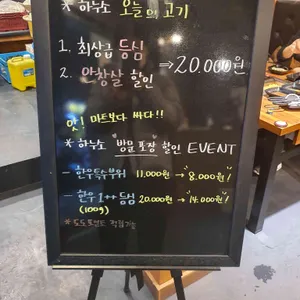 * 하누소 오늘의 고기
1. 최상급 등심
2. 안창살 할인
⇒ 20.000원
앗! 마트보다 싸다!!
* 하누소 "방문 포장" 할인 EVENT
- 한우특수부위 11.000원 → 8.000원!
- 한우 1++ 등심 20.000원 → 14.000원!
(100g)
* 도도포인트 적립가능